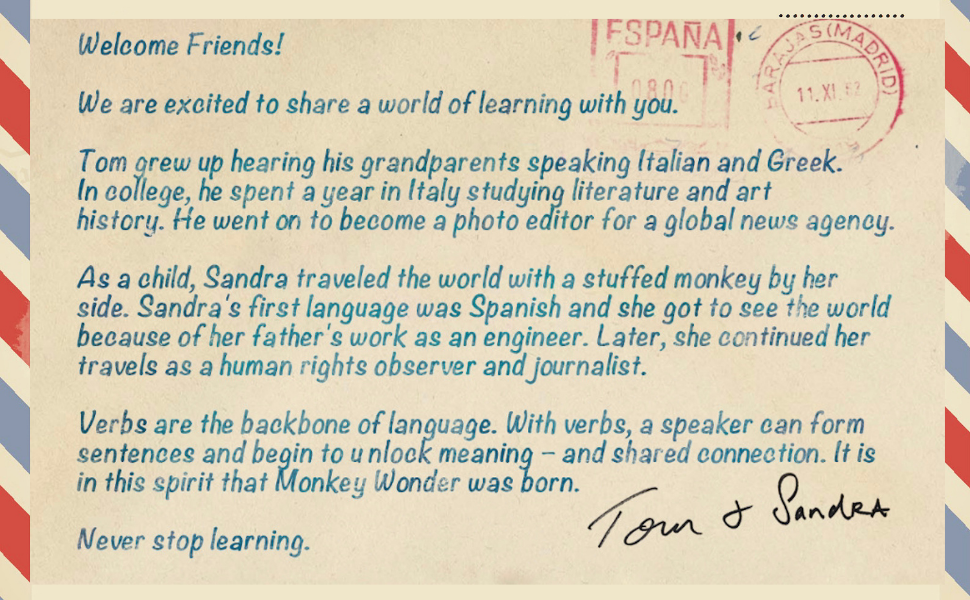 ESPAÑA
BARAJAS (MADRID)
Welcome Friends!
We are excited to share a world of learning with you.
Tom grew up hearing his grandparents speaking Italian and Greek.
In college, he spent a year in Italy studying literature and art
history. He went on to become a photo editor for a global news agency.
As a child, Sandra traveled the world with a stuffed monkey by her
side. Sandra's first language was Spanish and she got to see the world
because of her father's work as an engineer. Later, she continued her
travels as a human rights observer and journalist.
Verbs are the backbone of language. With verbs, a speaker can form
sentences and begin to unlock meaning – and shared connection. It is
in this spirit that Monkey Wonder was born.
Tom & Sandra
Never stop learning.